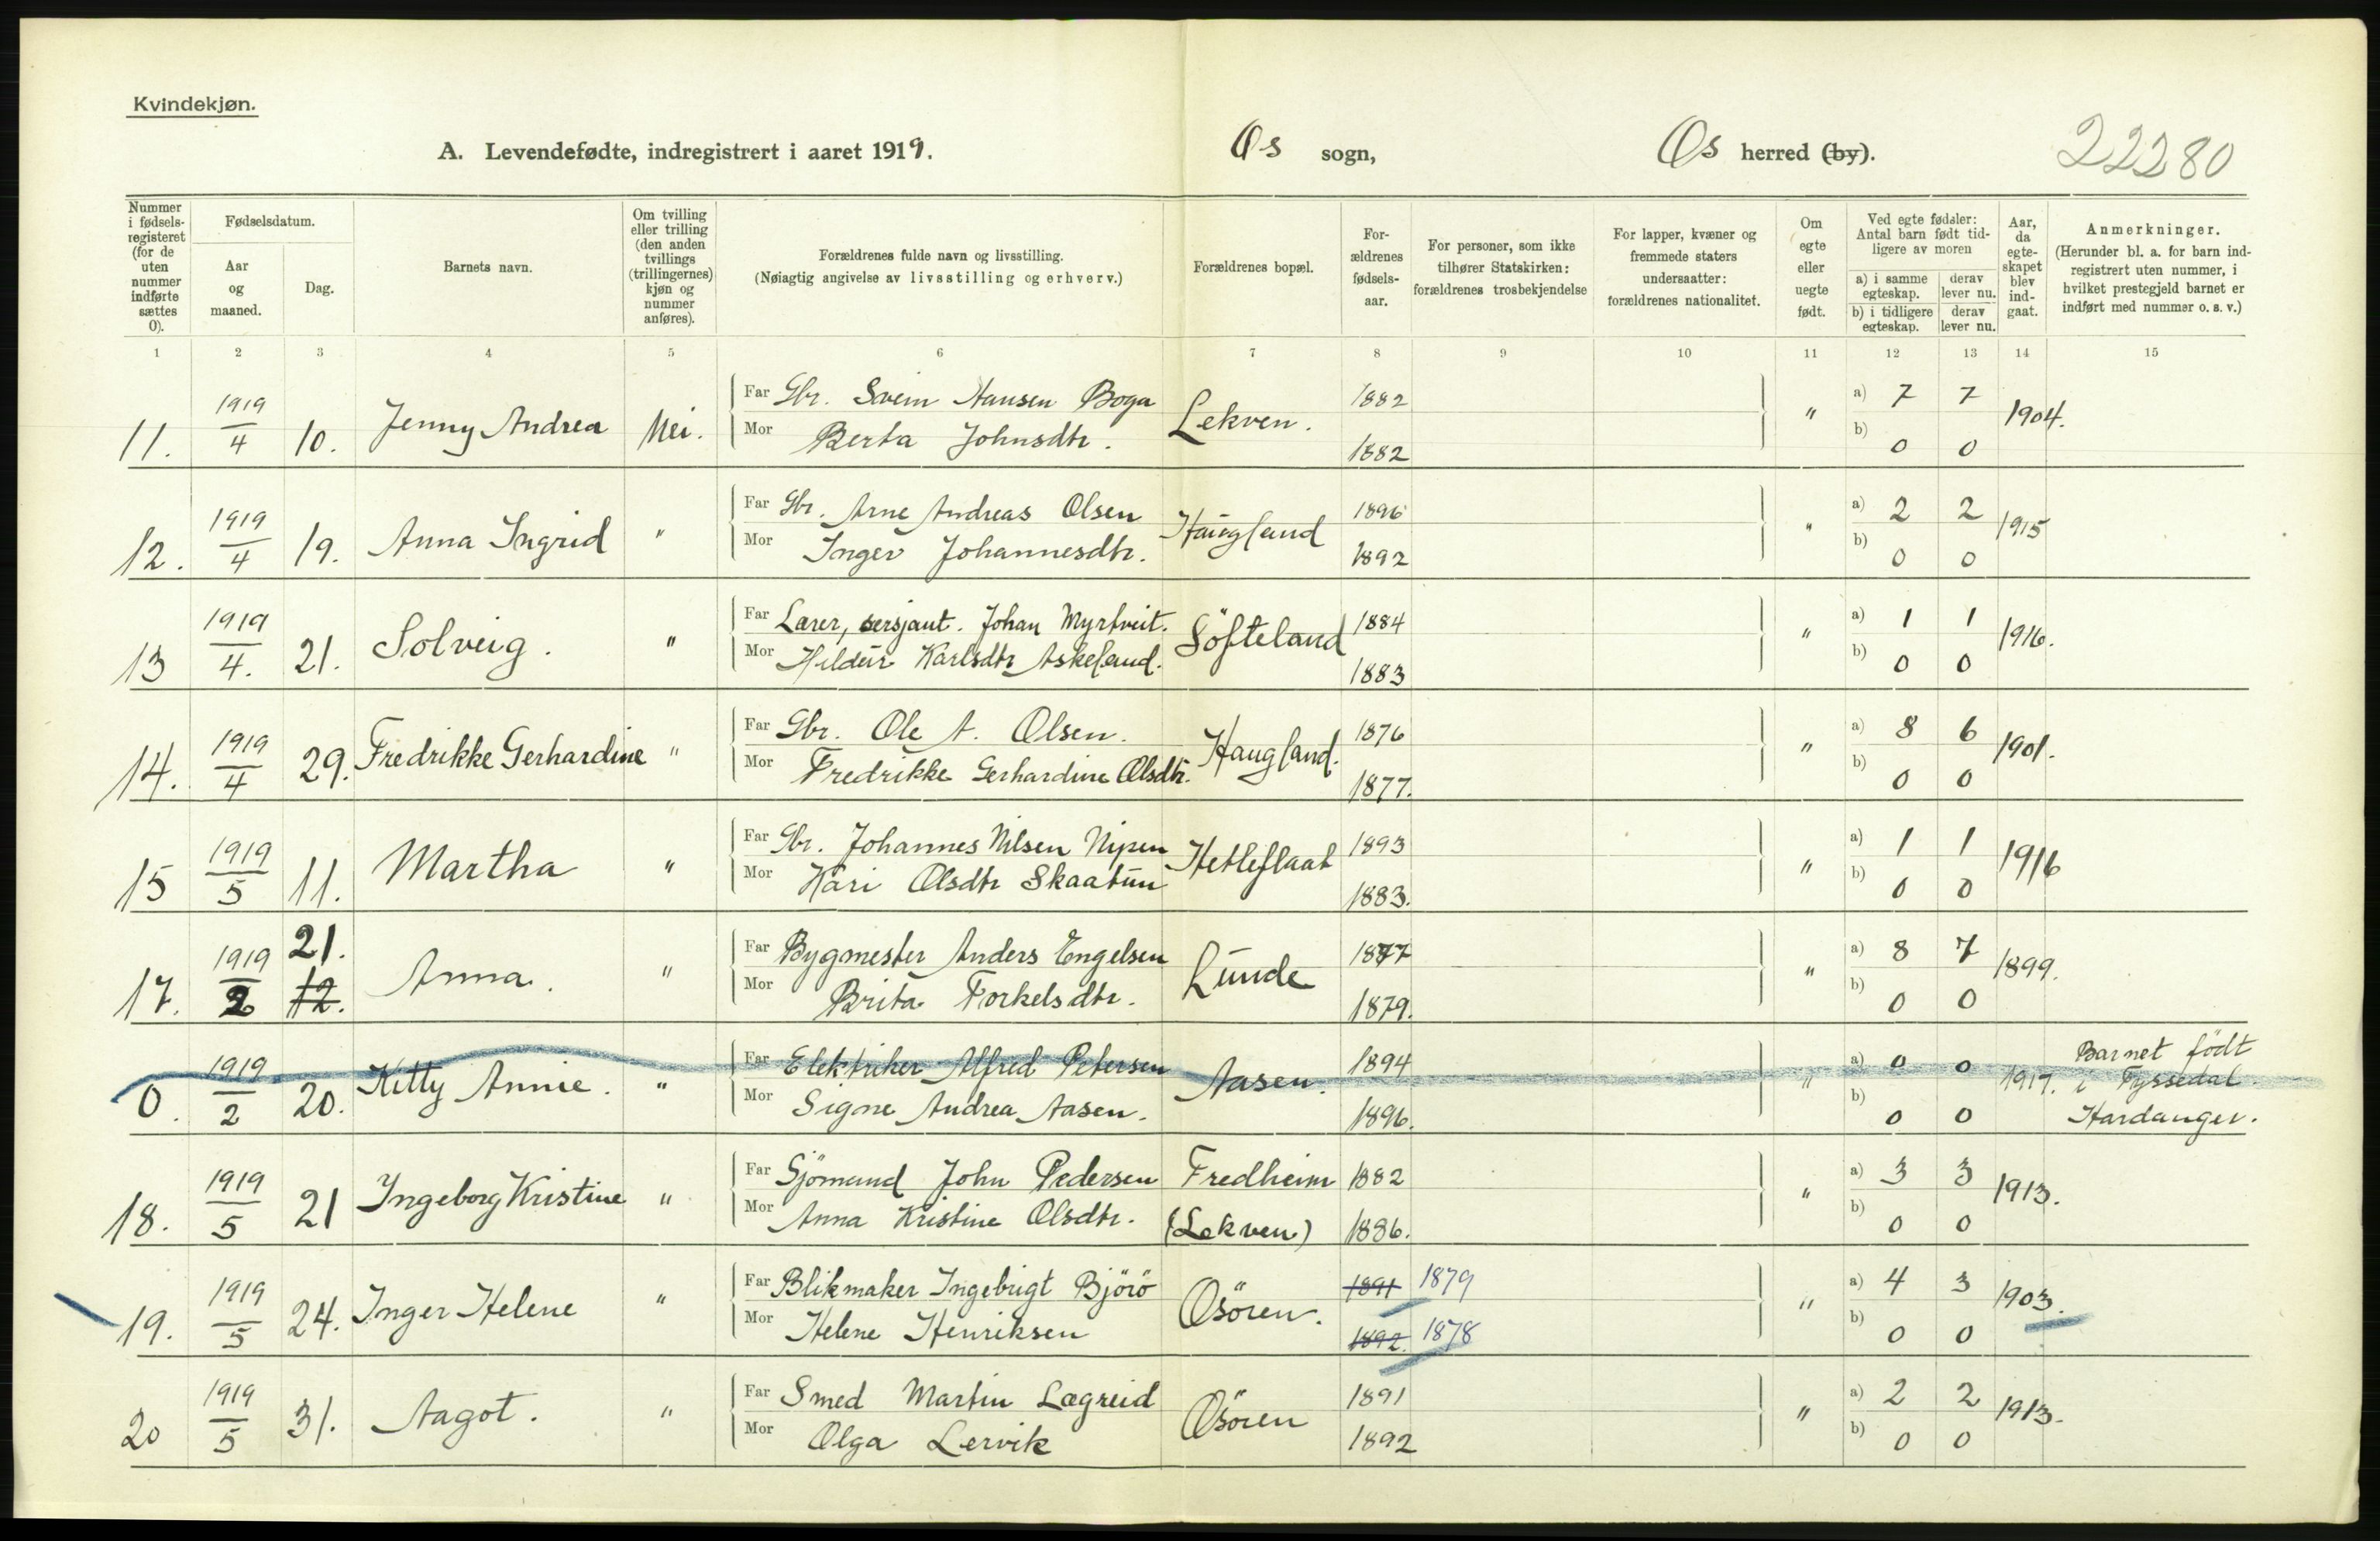 Kvindekjøn.
A. Levendefødte, indregistrert i aaret 1919. Os sogn, Os herred (by). 22280
Nummer i fødsels-registeret (for de uten nummer indførte sættes 0).
Fødselsdatum.
Aar og maaned.
Dag.
Barnets navn.
Om tvilling eller trilling (den anden tvillings (trillingernes) kjøn og nummer anføres).
Forældrenes fulde navn og livsstilling.
(Nøiagtig angivelse av livsstilling og erhverv.)
Forældrenes bopæl.
For-ældrenes fødsels-aar.
For personer, som ikke tilhører Statskirken: forældrenes trosbekjendelse
For lapper, kvæner og fremmede staters undersaatter: forældrenes nationalitet.
Om egte eller uegte født.
Ved egte fødsler: Antal barn født tid-ligere av moren
a) i samme egteskap. derav lever nu.
b) i tidligere egteskap. derav lever nu.
Aar, da egte-skapet blev ind-gaat.
Anmerkninger.
(Herunder bl. a. for barn ind-registrert uten nummer, i hvilket prestegjeld barnet er indført med nummer o. s. v.)
1 2 3 4 5 6 7 8 9 10 11 12 13 14 15
11. 1919/4 10. Jenny Andrea Nei. Far Gbr. Svein Hansen Boga Lekven. 1882 " a) 7 7 1904.
Mor Berta Johnsdtr. 1882 b) 0 0
12. 1919/4 19. Anna Ingrid " Far Gbr. Arne Andreas Olsen Haugland 1896 " a) 2 2 1915
Mor Inger Johannesdtr. 1892 b) 0 0
13 1919/4. 21. Solveig. " Far Lærer, sersjant. Johan Myrtveit. Söfteland 1884 " a) 1 1 1916.
Mor Hildur Karlsdtr Askeland. 1883 b) 0 0
14. 1919/4 29. Fredrikke Gerhardine " Far Gbr. Ole A. Olsen. Haugland. 1876 " a) 8 6 1901.
Mor Fredrikke Gerhardine Olsdtr. 1877. b) 0 0
15 1919/5 11. Martha " Far Gbr. Johannes Nilsen Nipen Hetleflaat 1893 " a) 1 1 1916
Mor Kari Olsdtr Skaatun 1883. b) 0 0
17. 1919/2 21. 12. Anna. " Far Bygmester Anders Engelsen Lunde 1877 " a) 8 7 1899.
Mor Brita Torkelsdtr. 1879. b) 0 0
0. 1919/2 20. Kitty Annie. " Far Elektriker Alfred Petersen Aasen. 1894 " a) 0 0 1917. Barnet födt i Tyssedal
Mor Signe Andrea Aasen. 1896. b) 0 0 Hardanger.
18. 1919/5 21 Ingeborg Kristine " Far Sjömand John Pedersen Fredheim 1882 " a) 3 3 1913.
Mor Anna Kristine Olsdtr. (Lekven) 1886. b) 0 0
19. 1919/5 24. Inger Helene " Far Blikmaker Ingebrigt Björö Osören. 1891 1879 " a) 4 3 1903.
Mor Helene Henriksen 1892. 1878 b) 0 0
20 1919/5 31. Aagot. " Far Smed Martin Lægreid Osören 1891 " a) 2 2 1913.
Mor Olga Lervik 1892 b) 0 0